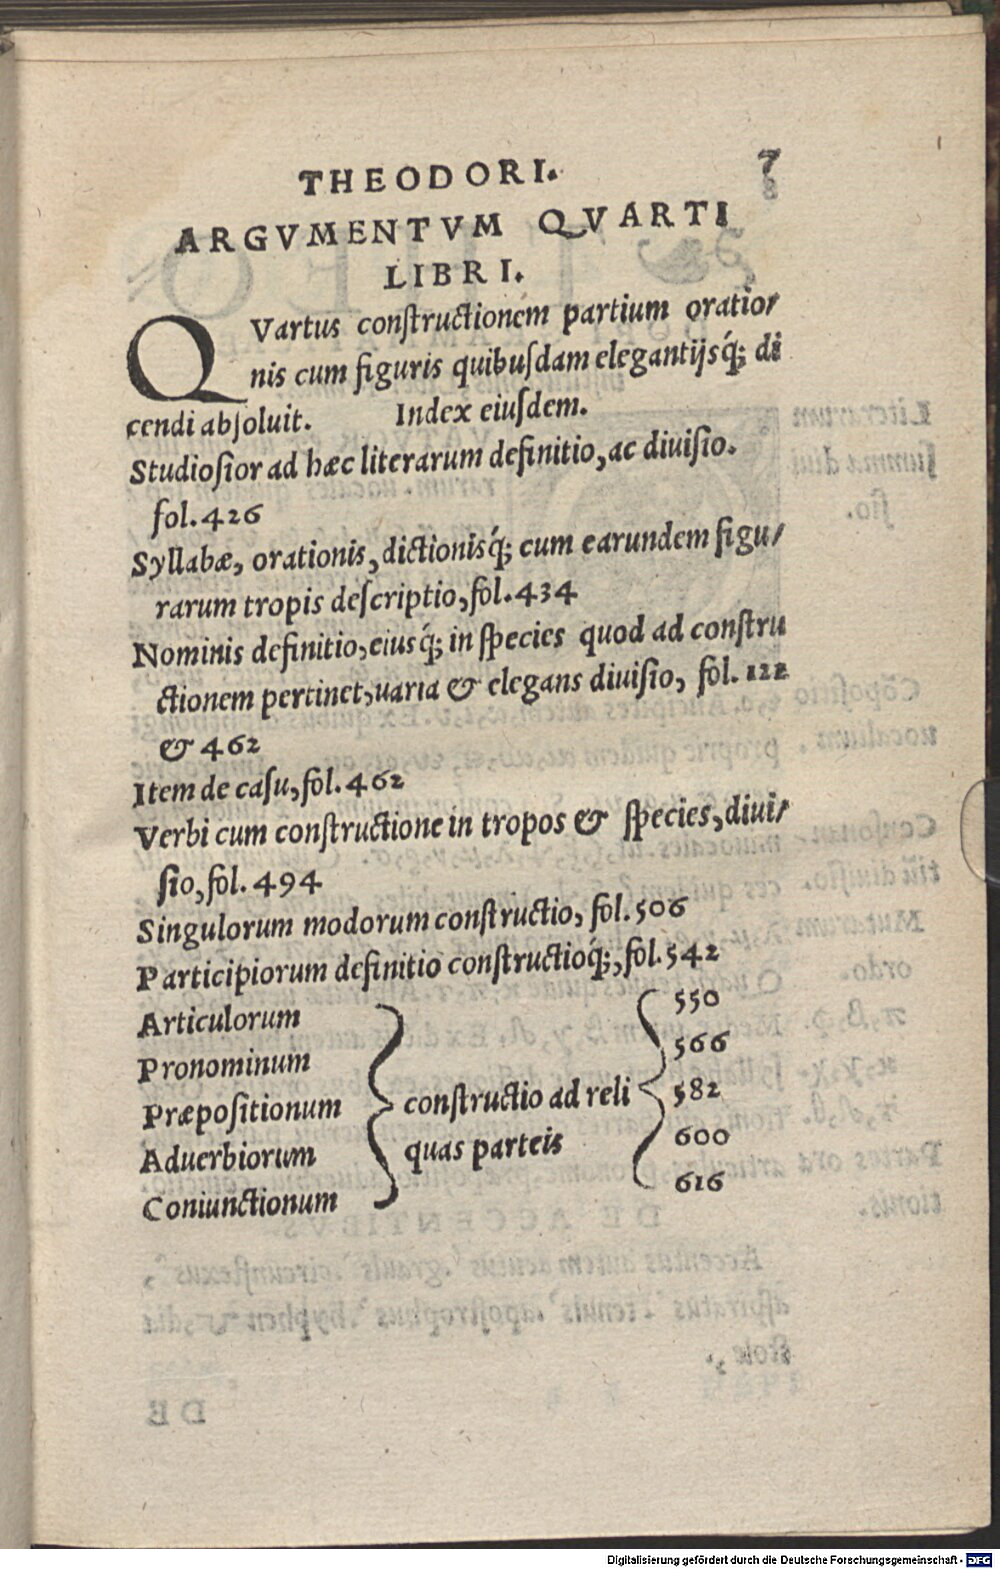 THEODORI. 7
ARGVMENTVM QVARTI
LIBRI.
QVartus constructionem partium oratio/
nis cum figuris quibusdam elegantijsq́; di
cendi absoluit. Index eiusdem.
Studiosior ad hæc literarum definitio, ac diuisio.
fol. 426
Syllabæ, orationis, dictionisq́; cum earundem figu/
rarum tropis descriptio, fol. 434
Nominis definitio, eiusq́; in species quod ad constru
ctionem pertinet, uaria & elegans diuisio, fol. 122
& 462
Item de casu, fol. 462
Verbi cum constructione in tropos & species, diui/
sio, fol. 494
Singulorum modorum constructio, fol. 506
Participiorum definitio constructioq́;, fol. 542
Articulorum 550
Pronominum 566
Præpositionum constructio ad reli 582
Aduerbiorum quas parteis 600
Coniunctionum 616
Digitalisierung gefördert durch die Deutsche Forschungsgemeinschaft - DFG